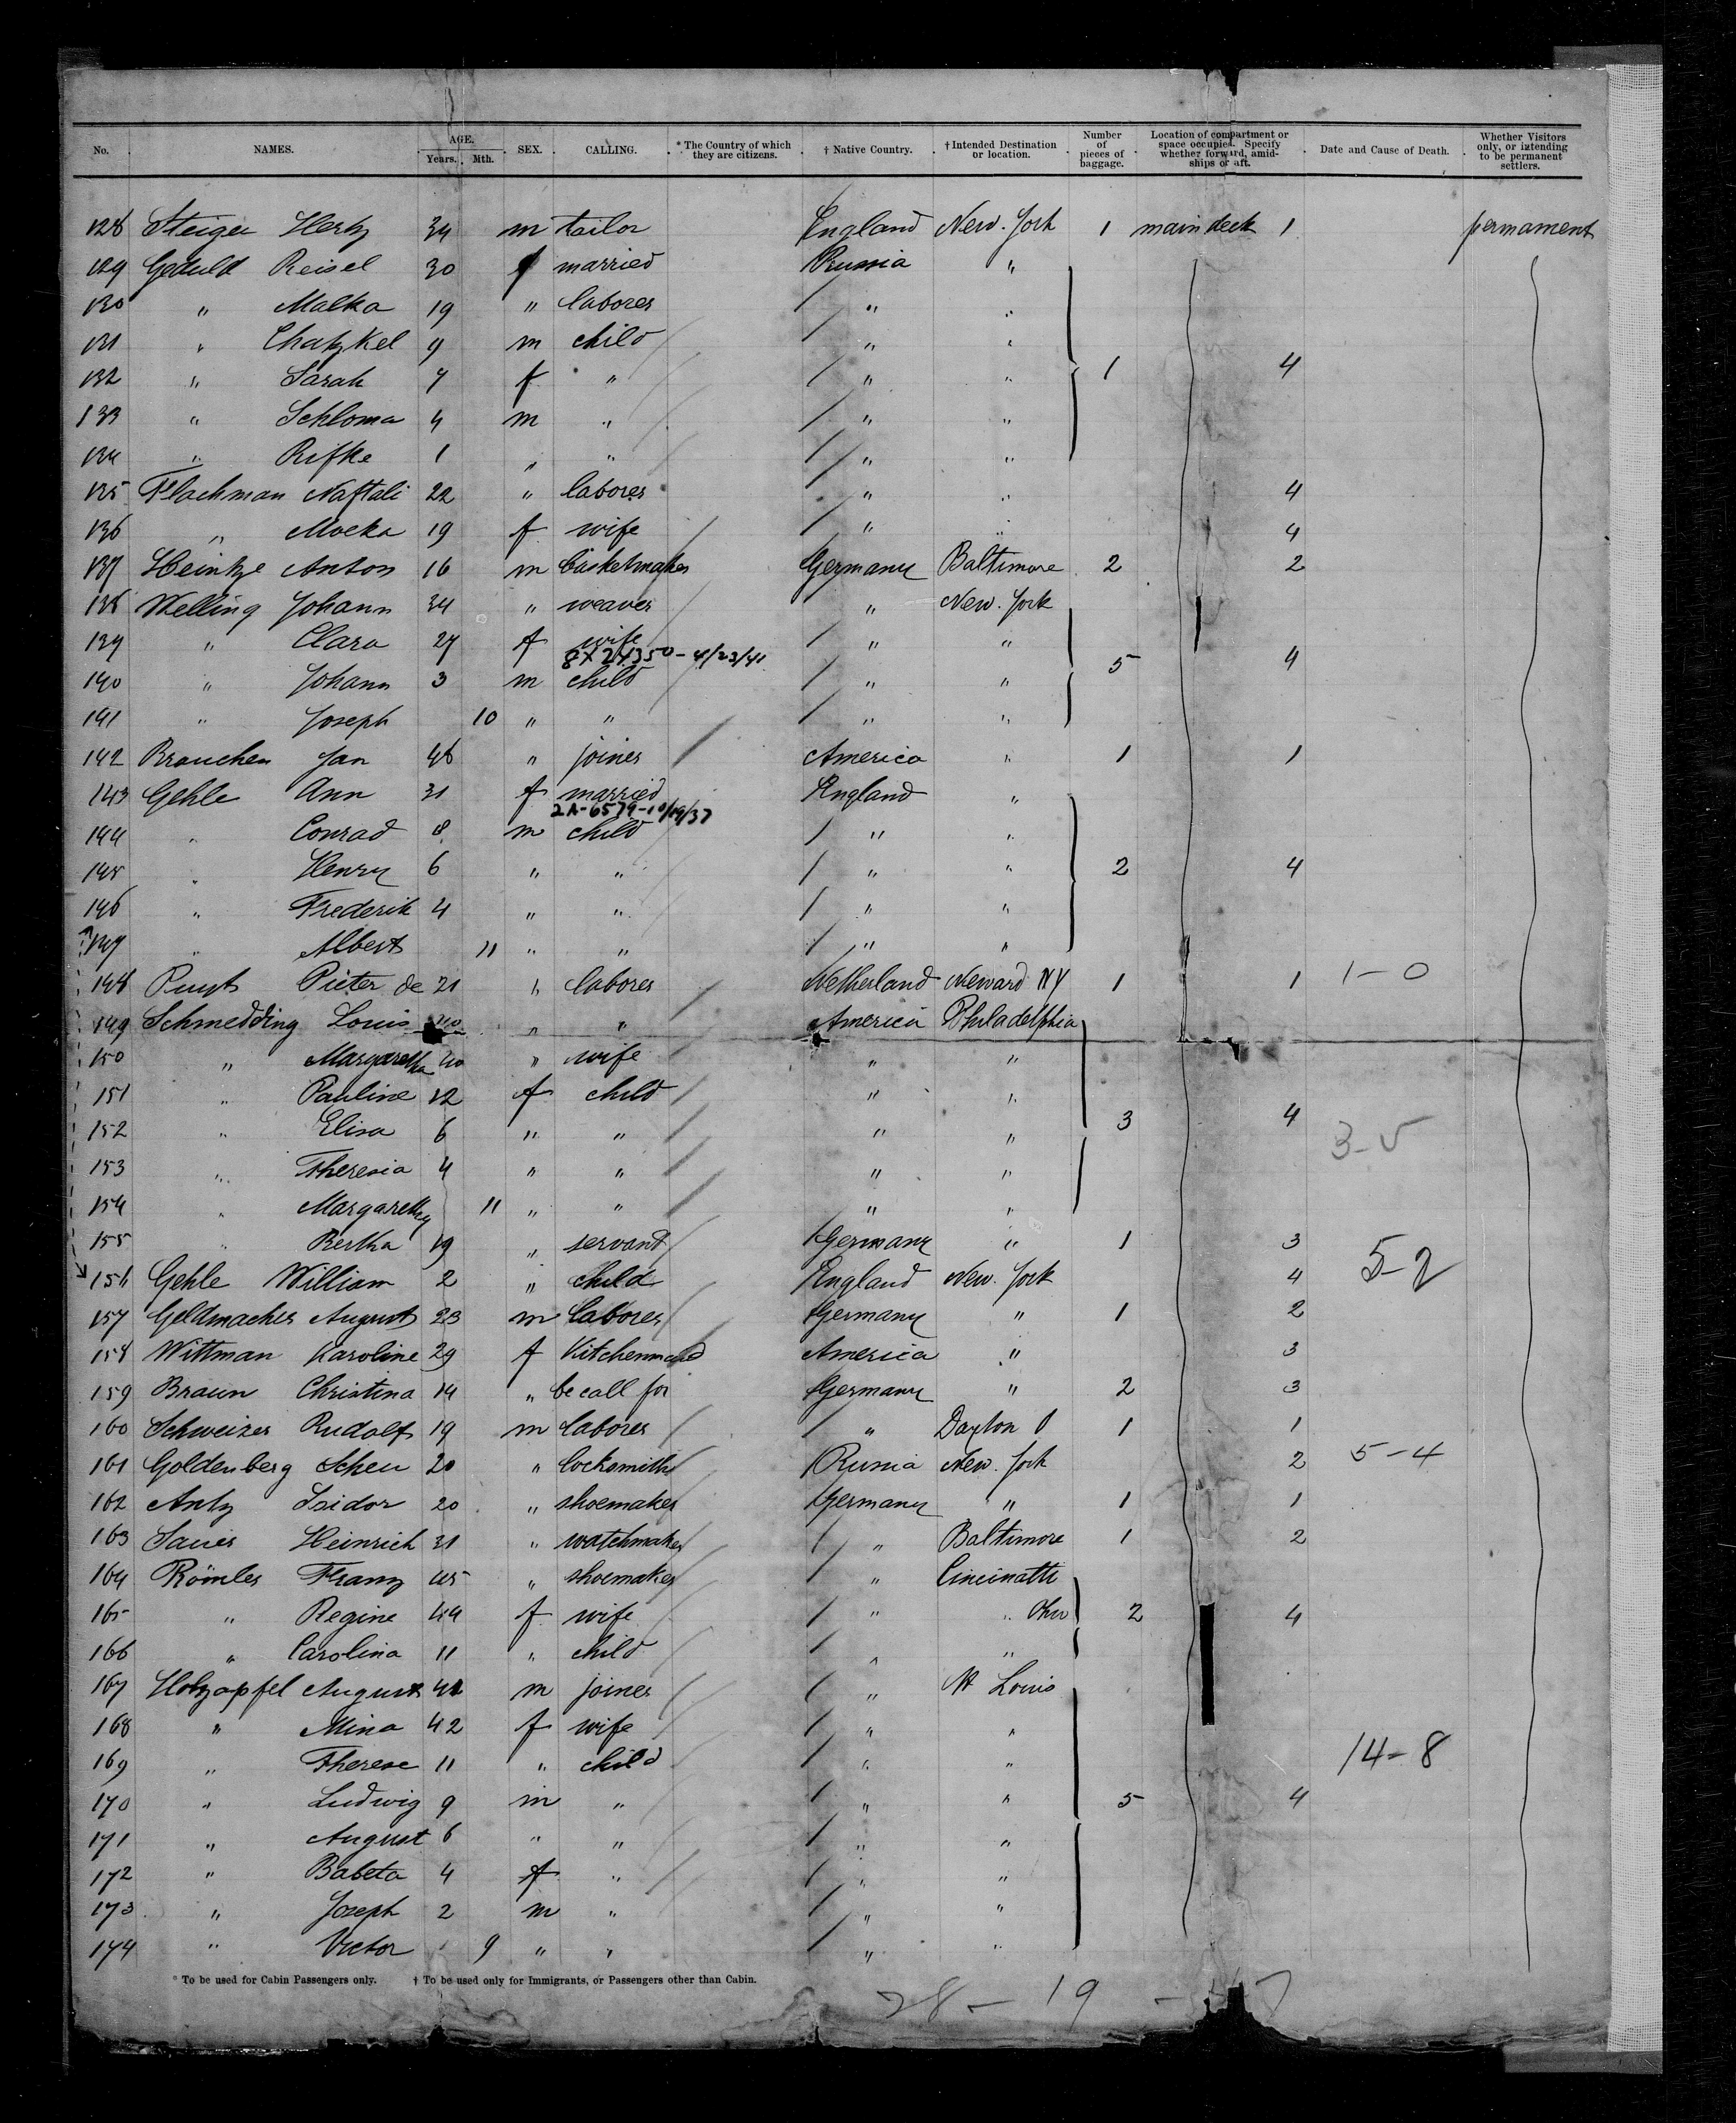 No. NAMES. AGE. Years. Mth. SEX. CALLING. * The Country of which they are citizens. † Native Country. † Intended Destination or location. Number of pieces of baggage. Location of compartment or space occupied. Specify whether forward, amidships or aft. Date and Cause of Death. Whether Visitors only, or intending to be permanent settlers.
128 Steiger Hertz 34 m tailor England New. York 1 main deck 1 permament
129 Geduld Reisel 30 f married Russia "
130 " Malka 19 " laborer " "
131 " Chatzkel 9 m child " "
132 " Sarah 7 f " " " 1 4
133 " Schloma 4 m " " "
134 " Rifke 1 " " " "
135 Flachman Naftali 22 " laborer " " 4
136 " Moeka 19 f wife " " 4
137 Heintze Anton 16 m basketmaker Germany Baltimore 2 2
138 Welling Johann 34 " weaver " New. York
139 " Clara 27 f wife " " 5 4
8X 24350 - 4/23/41
140 " Johann 3 m child " "
141 " Joseph 10 " " " "
142 Brauchen Jan 46 " joiner America " 1 1
143 Gehle Ann 31 f married England "
2A-6579-10/19/37
144 " Conrad 8 m child " "
145 " Henry 6 " " " " 2 4
146 " Frederik 4 " " " "
147 " Albert 11 " " " "
148 Puyt Pieter de 21 " laborer Netherland Neward NY 1 1 1-0
149 Schmedding Louis 40 " " America Philadelphia
150 " Margaretha 40 " wife " "
151 " Pauline 12 f child " "
152 " Elisa 6 " " " " 3 4 3-5
153 " Theresia 4 " " " "
154 " Margarethey 11 " " " "
155 " Bertha 19 " servant Germany " 1 3
156 Gehle William 2 " child England New. York 4 5-2
157 Geldmacher August 23 m laborer Germany " 1 2
158 Wittman Karoline 29 f Kitchenmaid America " 3
159 Braun Christina 14 " be call for Germany " 2 3
160 Schweizer Rudolf 19 m laborer " Dayton O 1 1
161 Goldenberg Scheu 20 " locksmith Russia New. York 2 5-4
162 Antz Isidor 20 " shoemaker Germany " 1 1
163 Sauer Heinrich 31 " watchmaker " Baltimore 1 2
164 Römler Franz 45 " shoemaker " Cincinatti
165 " Regine 44 f wife " " Ohio 2 4
166 " Carolina 11 " child " "
167 Holzapfel August 42 m joiner " St Louis
168 " Mina 42 f wife " "
169 " Therese 11 " child " " 14-8
170 " Ludwig 9 m " " " 5 4
171 " August 6 " " " "
172 " Babeta 4 f " " "
173 " Joseph 2 m " " "
174 " Victor 9 " " " "
* To be used for Cabin Passengers only. † To be used only for Immigrants, or Passengers other than Cabin.
28 - 19 -